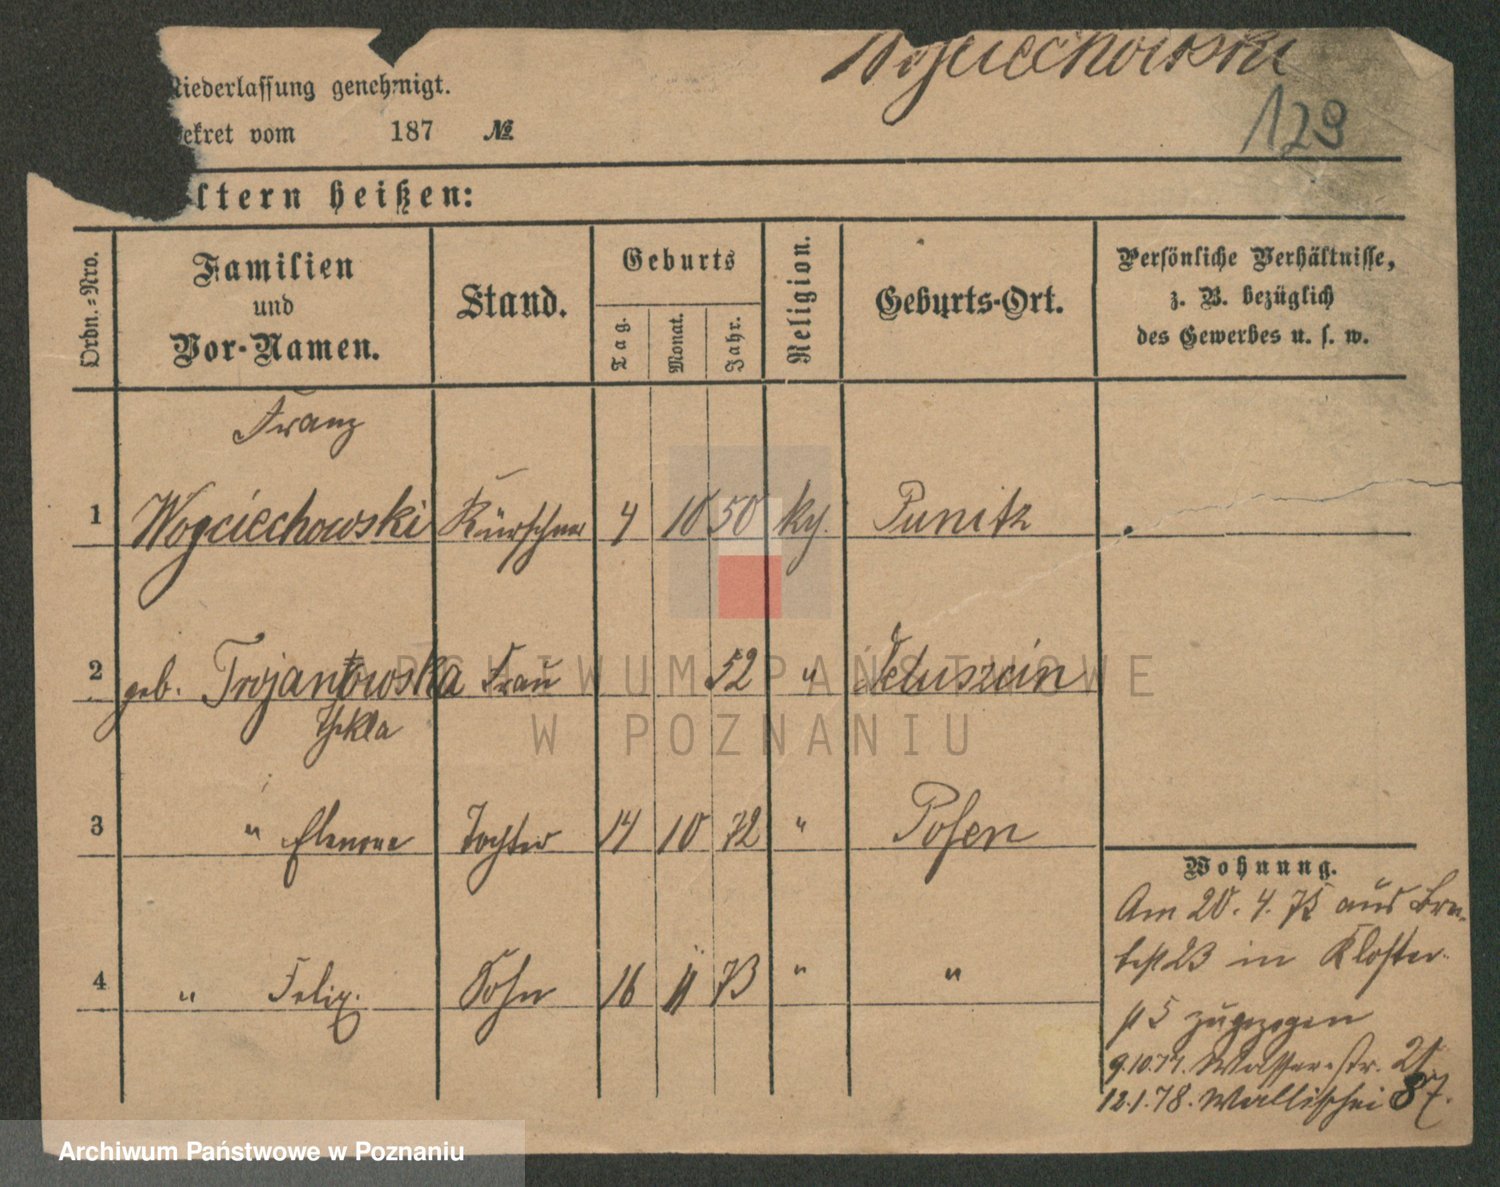 Wojciechowski
129
Niederlassung genehmigt.
Dekret vom 187 №
ltern heißen:
Ordn.=Nro.
Familien
und
Vor-Namen.
Stand.
Geburts
Tag.
Monat.
Jahr.
Religion.
Geburts-Ort.
Persönliche Verhältnisse,
z. B. bezüglich
des Gewerbes u. s. w.
Franz
1 Wojciechowski Kürschner 4 10 50 Punitz
2 geb. Trojanowska Frau 52 "
Thekla
3 " Elenore Tochter 14 10 72 " Posen
4 " Felix. Sohn 16 11 73 " "
Wohnung.
Am 20. 4. 75 aus
23 in Kloster-
st 5 zugezogen
9.10.77. Wasser-str. 21.
12.1.78. Wallischei 87.
ARCHIWUM PAŃSTWOWE
W POZNANIU
Archiwum Państwowe w Poznaniu